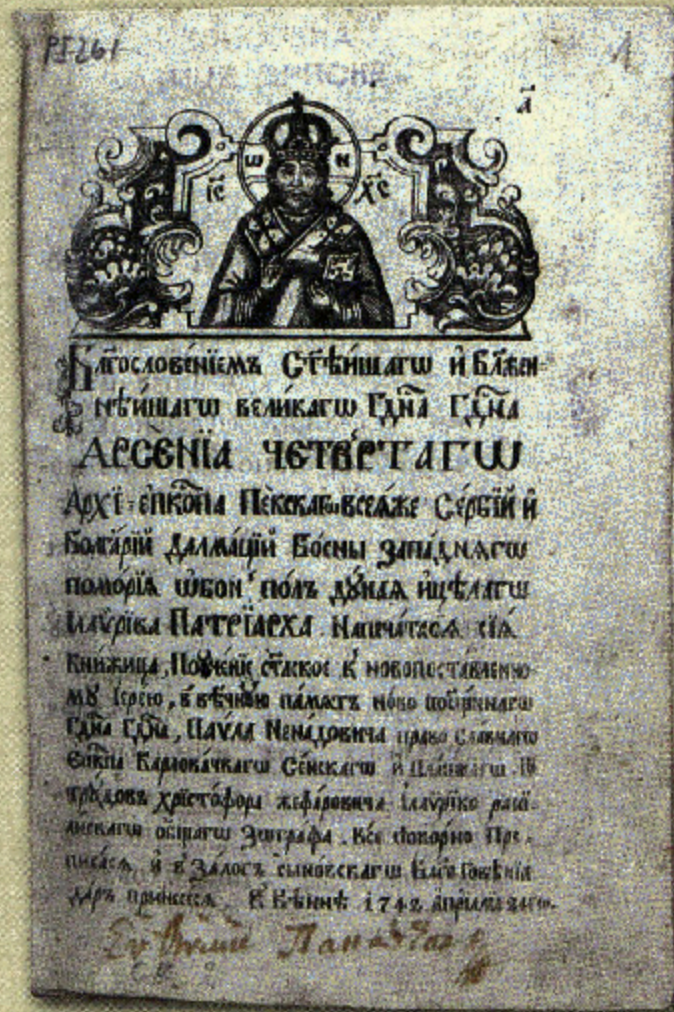 РI261
1
а҃
ѡ Н
І҃С Х҃С
Бл҃гословенїемъ Ст҃ѣйшагѡ и҆ Бл҃жен=
нѣйшагѡ великагѡ Гдⷭ҇на Гдⷭ҇на
АРСЕ́НЇА ЧЕТВЕ́РТАГѠ
Архї=епⷭ҇копа Пекскагѡ всеѧже Се́рбїй и҆
Болга́рїй Далма́цїй Бо́сны Запа́днѧгѡ
помо́рїѧ ѡбон̾ по́лъ дꙋ́наѧ ицѣлагѡ
Їллѷріка ПАТРЇА́РХА. Напеча́тасѧ сїѧ̀
Книжица, Поꙋче́нїе ст҃лское к̾ новопоста́вленно=
мꙋ Іере́ю, в̾ вѣ́чнꙋю па́мѧть но́во
Гдⷭ҇на Гдⷭ҇на, Паѵла Нена́довича право сла́внагѡ
Епⷭ҇кпа Карлова́чкагѡ Се́нскагѡ и҆
трꙋдовъ хрїсто́фора жефаровича Їллѷріко расї=
а́нскагѡ о́бщагѡ Зѡграфа. Пре=
писасѧ, и҆ в̾ Зало́гъ сыно́вскагѡ Бл҃го Говѣ́нїѧ
да́ръ принесе́сѧ. В̾ Вїе́ннѣ 1742